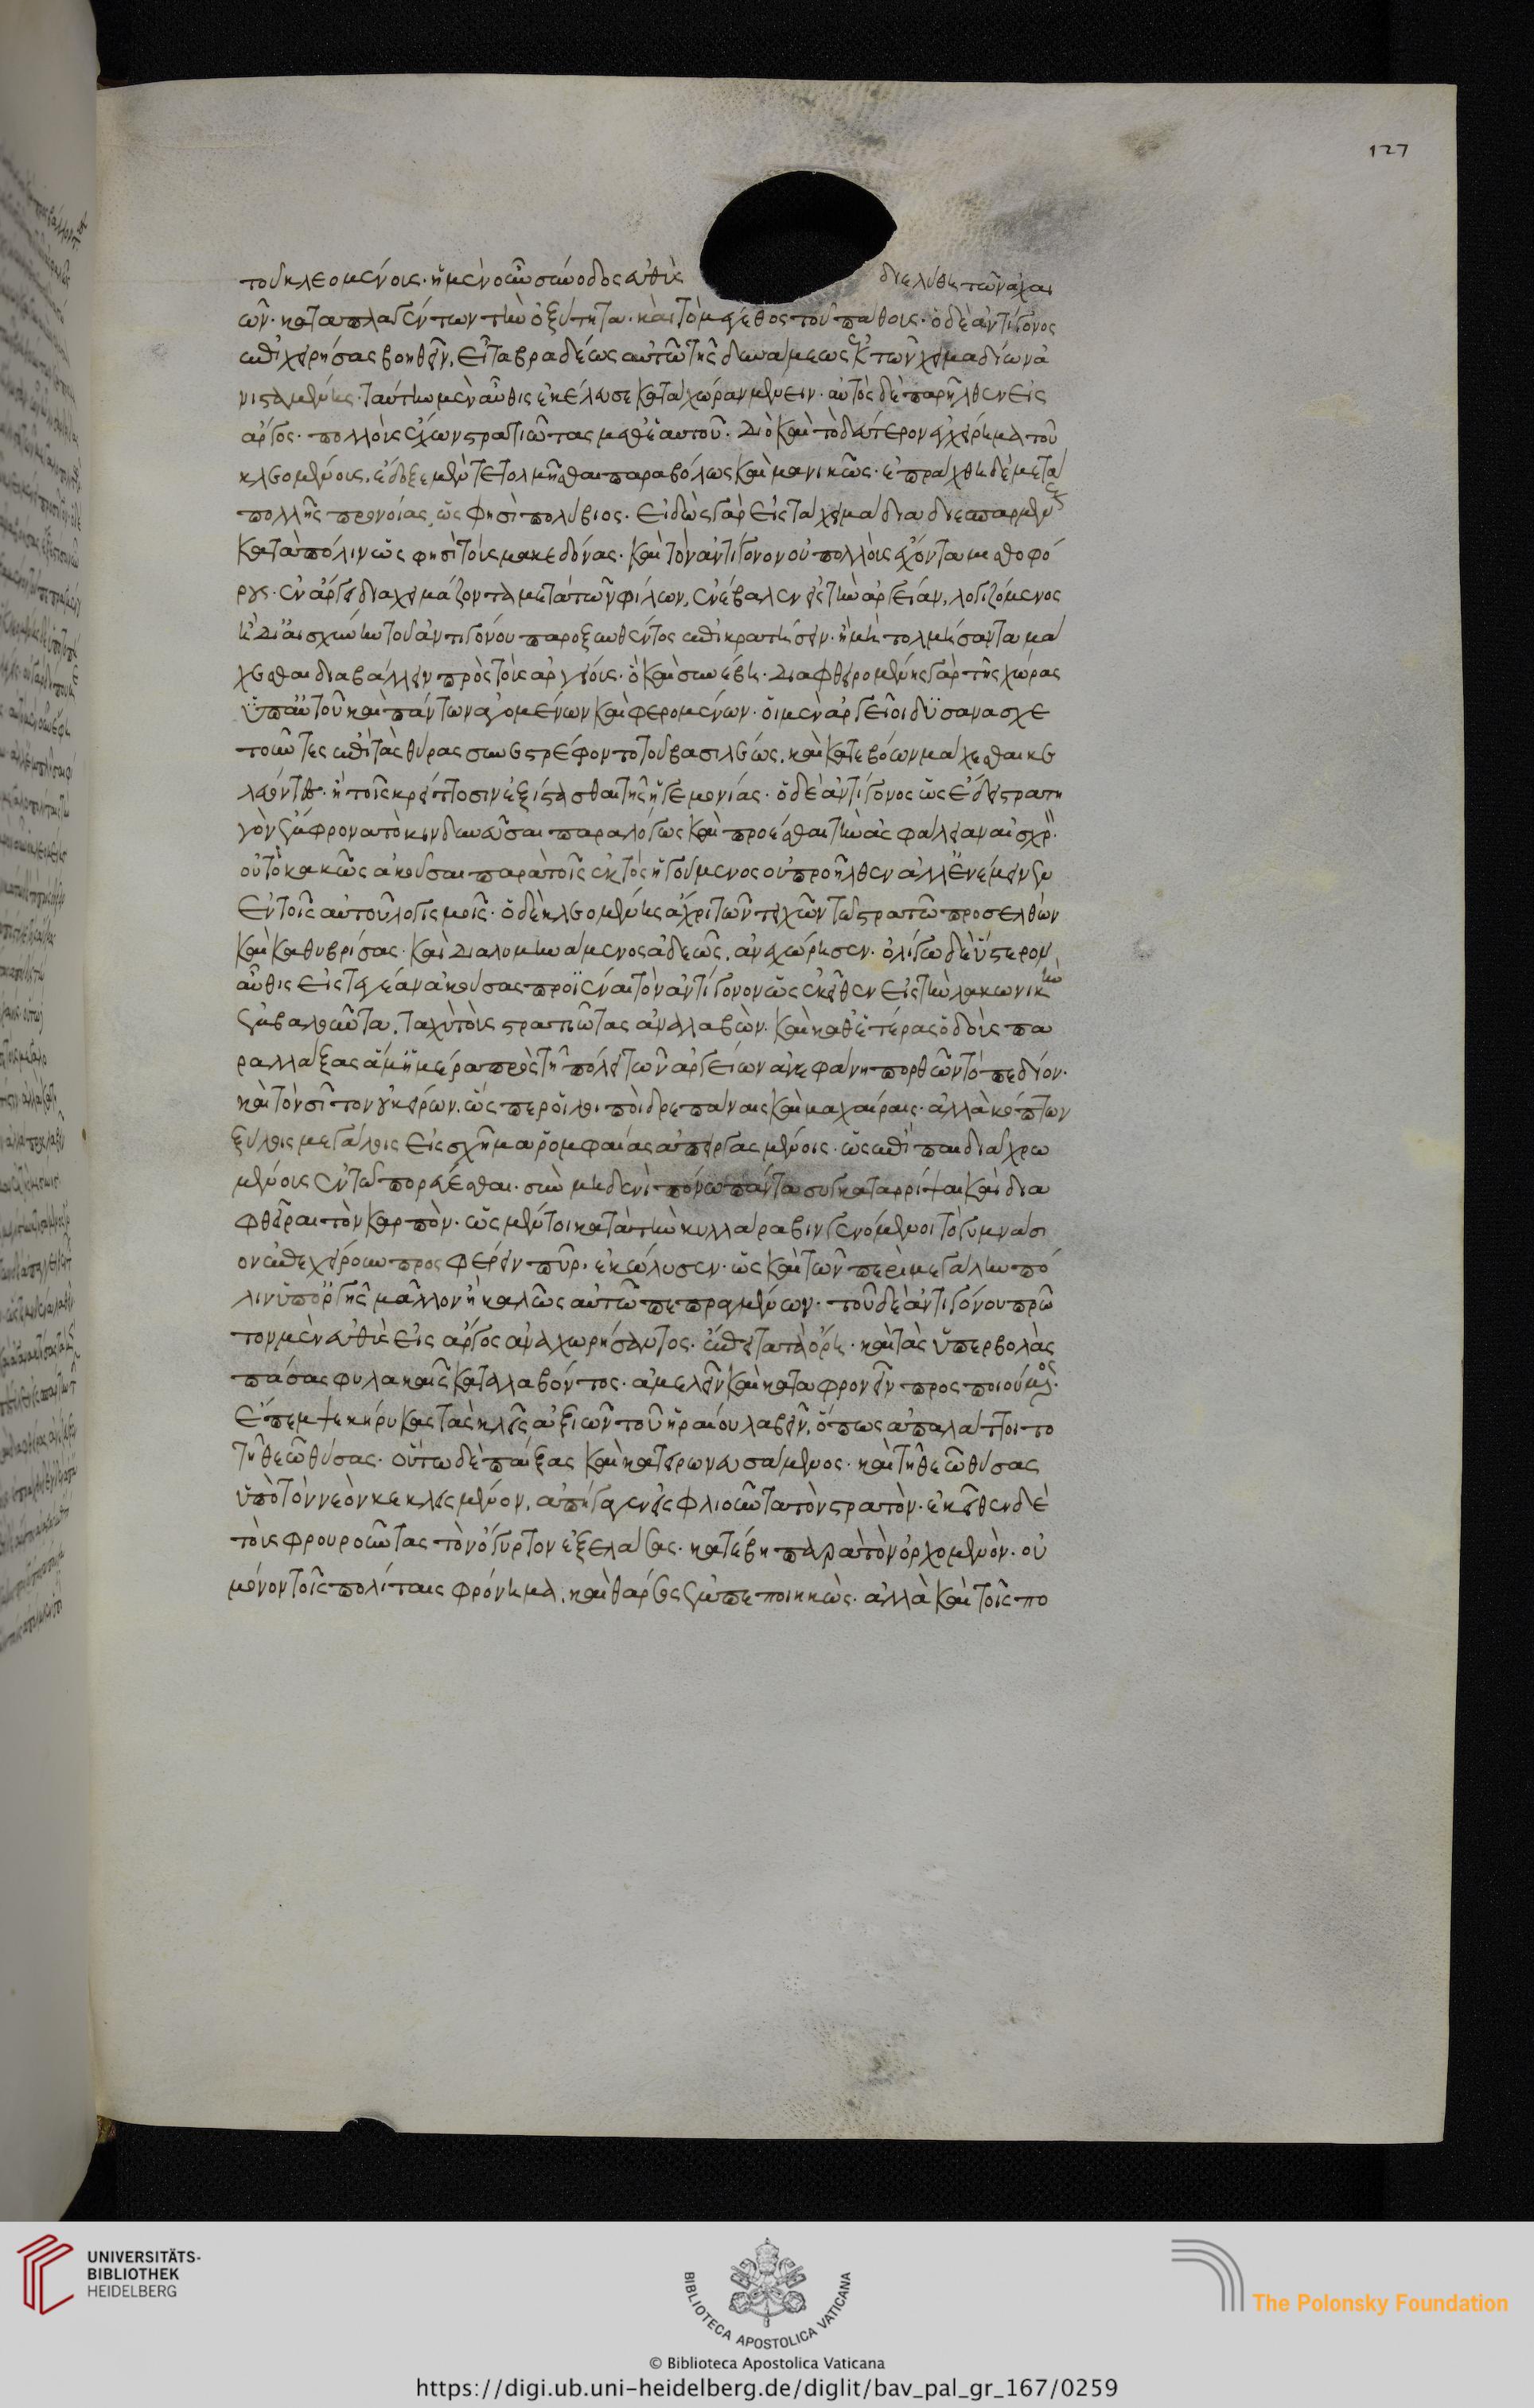 127
τοῦ κλεομένους· ἡ μὲν οὖν σύνοδος εὐθὺς διελύθη τῶν ἀχαι
ῶν· καταπλαγέντων τὴν ὀξύτητα· καὶ τὸ μέγεθος τοῦ πάθους· ὁ δὲ ἀντίγονος
ἐπιχειρήσας βοηθεῖν, εἶτα βραδέως αὐτῶ τῆς δυνάμεως ἐκ τῶν χειμαδίων ἀ
νισταμένης· ταύτην μὲν αὖθις ἐκέλευσε κατὰ χώραν μένειν· αὐτὸς δὲ παρῆλθεν εἰς
ἄργος· πολλοὺς ἔχων στρατιώτας μεθ' ἑαυτοῦ· διὸ καὶ τὸ δεύτερον ἐγχείρημα τοῦ
κλεομένους, ἔδοξε μὲν τετολμῆσθαι παραβόλως καὶ μανικῶς· ἐπράχθη δὲ μετὰ
πολλῆς προνοίας, ὥς φησι πολύβιος· εἰδὼς γὰρ εἰς τὰ χειμάδια διεσπαρμένους
κατὰ πόλιν ὥς φησι τοὺς μακεδόνας· καὶ τὸν ἀντίγονον οὐ πολλοὺς ἔχοντα μισθοφό
ρους· ἐν ἄργει διαχειμάζοντα μετὰ τῶν φίλων, ἐνέβαλεν εἰς τὴν ἀργείαν, λογιζόμενος
ἢ δι' αἰσχύνην τοῦ ἀντιγόνου παροξυνθέντος ἐπικρατήσειν· ἢ μὴ τολμήσαντα μά
χεσθαι διαβάλλειν πρὸς τοὺς ἀργείους· ὃ καὶ συνέβη· διαφθειρομένης γὰρ τῆς χώρας
ὑπ' αὐτοῦ καὶ πάντων ἀγομένων καὶ φερομένων· οἱ μὲν ἀργεῖοι δυσανασχε
τοῦντες ἐπὶ τὰς θύρας συνεστρέφοντο τοῦ βασιλέως, καὶ κατεβόων μάχεσθαι κε
λεύοντες· ἢ τοῖς κρείττοσιν ἐξίστασθαι τῆς ἡγεμονίας· ὁ δὲ ἀντίγονος ὡς ἔδει στρατη
γὸν ἔμφρονα τὸ κινδυνεῦσαι παραλόγως καὶ προέσθαι τὴν ἀσφάλειαν αἰσχρὸν·
οὐ τὸ κακῶς ἀκοῦσαι παρὰ τοῖς ἐκτὸς ἡγούμενος οὐ προῆλθεν ἀλλ' ἐνέμεινεν
ἐν τοῖς αὑτοῦ λογισμοῖς· ὁ δὲ κλεομένης ἄχρι τῶν τειχῶν τῶ στρατῶ προσελθὼν
καὶ καθυβρίσας· καὶ διαλυμηνάμενος ἀδεῶς, ἀνεχώρησεν· ὀλίγω δὲ ὕστερον
αὖθις εἰς τεγέαν ἀκούσας προϊέναι τὸν ἀντίγονον ὡς ἐκεῖθεν εἰς τὴν λακωνικὴν
ἐμβαλοῦντα, ταχὺ τοὺς στρατιώτας ἀναλαβὼν· καὶ καθ' ἑτέρας ὁδοὺς πα
ραλλάξας ἅμ' ἡμέρα πρὸς τῆ πόλει τῶν ἀργείων ἀνεφάνη πορθῶν τὸ πεδίον·
καὶ τὸν σῖτον οὐ κείρων, ὥσπερ οἱ λοιποὶ δρεπάναις καὶ μαχαίραις· ἀλλὰ κόπτων
ξύλοις μεγάλοις εἰς σχῆμα ῥομφαίας ἀπειργασμένοις· ὡς ἐπὶ παιδιᾶ χρω
μένους ἐν τῶ πορεύεσθαι· σὺν μηδενὶ πόνω πάντα συγκαταρρίψαι καὶ δια
φθεῖραι τὸν καρπὸν· ὡς μέντοι κατὰ τὴν κυλλάραβιν γενόμενοι τὸ γυμνάσι
ον ἐπεχείρουν προσφέρειν πῦρ, ἐκώλυσεν· ὡς καὶ τῶν περὶ μεγάλην πό
λιν ὑπ' ὀργῆς μᾶλλον ἢ καλῶς αὐτῶ πεπραγμένων· τοῦ δὲ ἀντιγόνου πρῶ
τον μὲν εὐθὺς εἰς ἄργος ἀναχωρήσαντος· ἔπειτα τὰ ὄρη· καὶ τὰς ὑπερβολὰς
πάσας φυλακαῖς καταλαβόντος· ἀμελεῖν καὶ καταφρονεῖν προσποιούμενος·
ἔπεμψε κήρυκας τὰς κλεῖς ἀξιῶν τοῦ ἡραίου λαβεῖν, ὅπως ἀπαλλάττοιτο
τῆ θεῶ θύσας· οὕτω δὲ παίξας καὶ κατειρωνευσάμενος· καὶ τῆ θεῶ θύσας
ὑπὸ τὸν νεὸν κεκλεισμένον, ἀπήγαγεν εἰς φλιοῦντα τὸν στρατὸν· ἐκεῖθεν δὲ
τοὺς φρουροῦντας τὸν ὀγυρτον ἐξελάσας· κατέβη παρὰ τὸν ὀρχομενὸν· οὐ
μόνον τοῖς πολίταις φρόνημα, καὶ θάρσος ἐμπεποιηκὼς· ἀλλὰ καὶ τοῖς πο
UNIVERSITÄTS-
BIBLIOTHEK
HEIDELBERG
BIBLIOTECA APOSTOLICA VATICANA
The Polonsky Foundation
© Biblioteca Apostolica Vaticana
https://digi.ub.uni-heidelberg.de/diglit/bav_pal_gr_167/0259